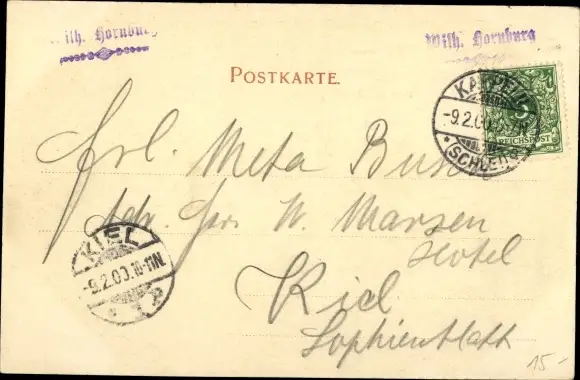 Wilh. Hornburg
Wilh. Hornburg
POSTKARTE.
KAPPELN
-9.2.00.
* (SCHLESW
REICHSPOST
Frl. Meta
Adr. Hrn W. Marxsen
Hotel
KIEL
-9.2.00.10-11N.
Kiel
Sophienblatt
15-